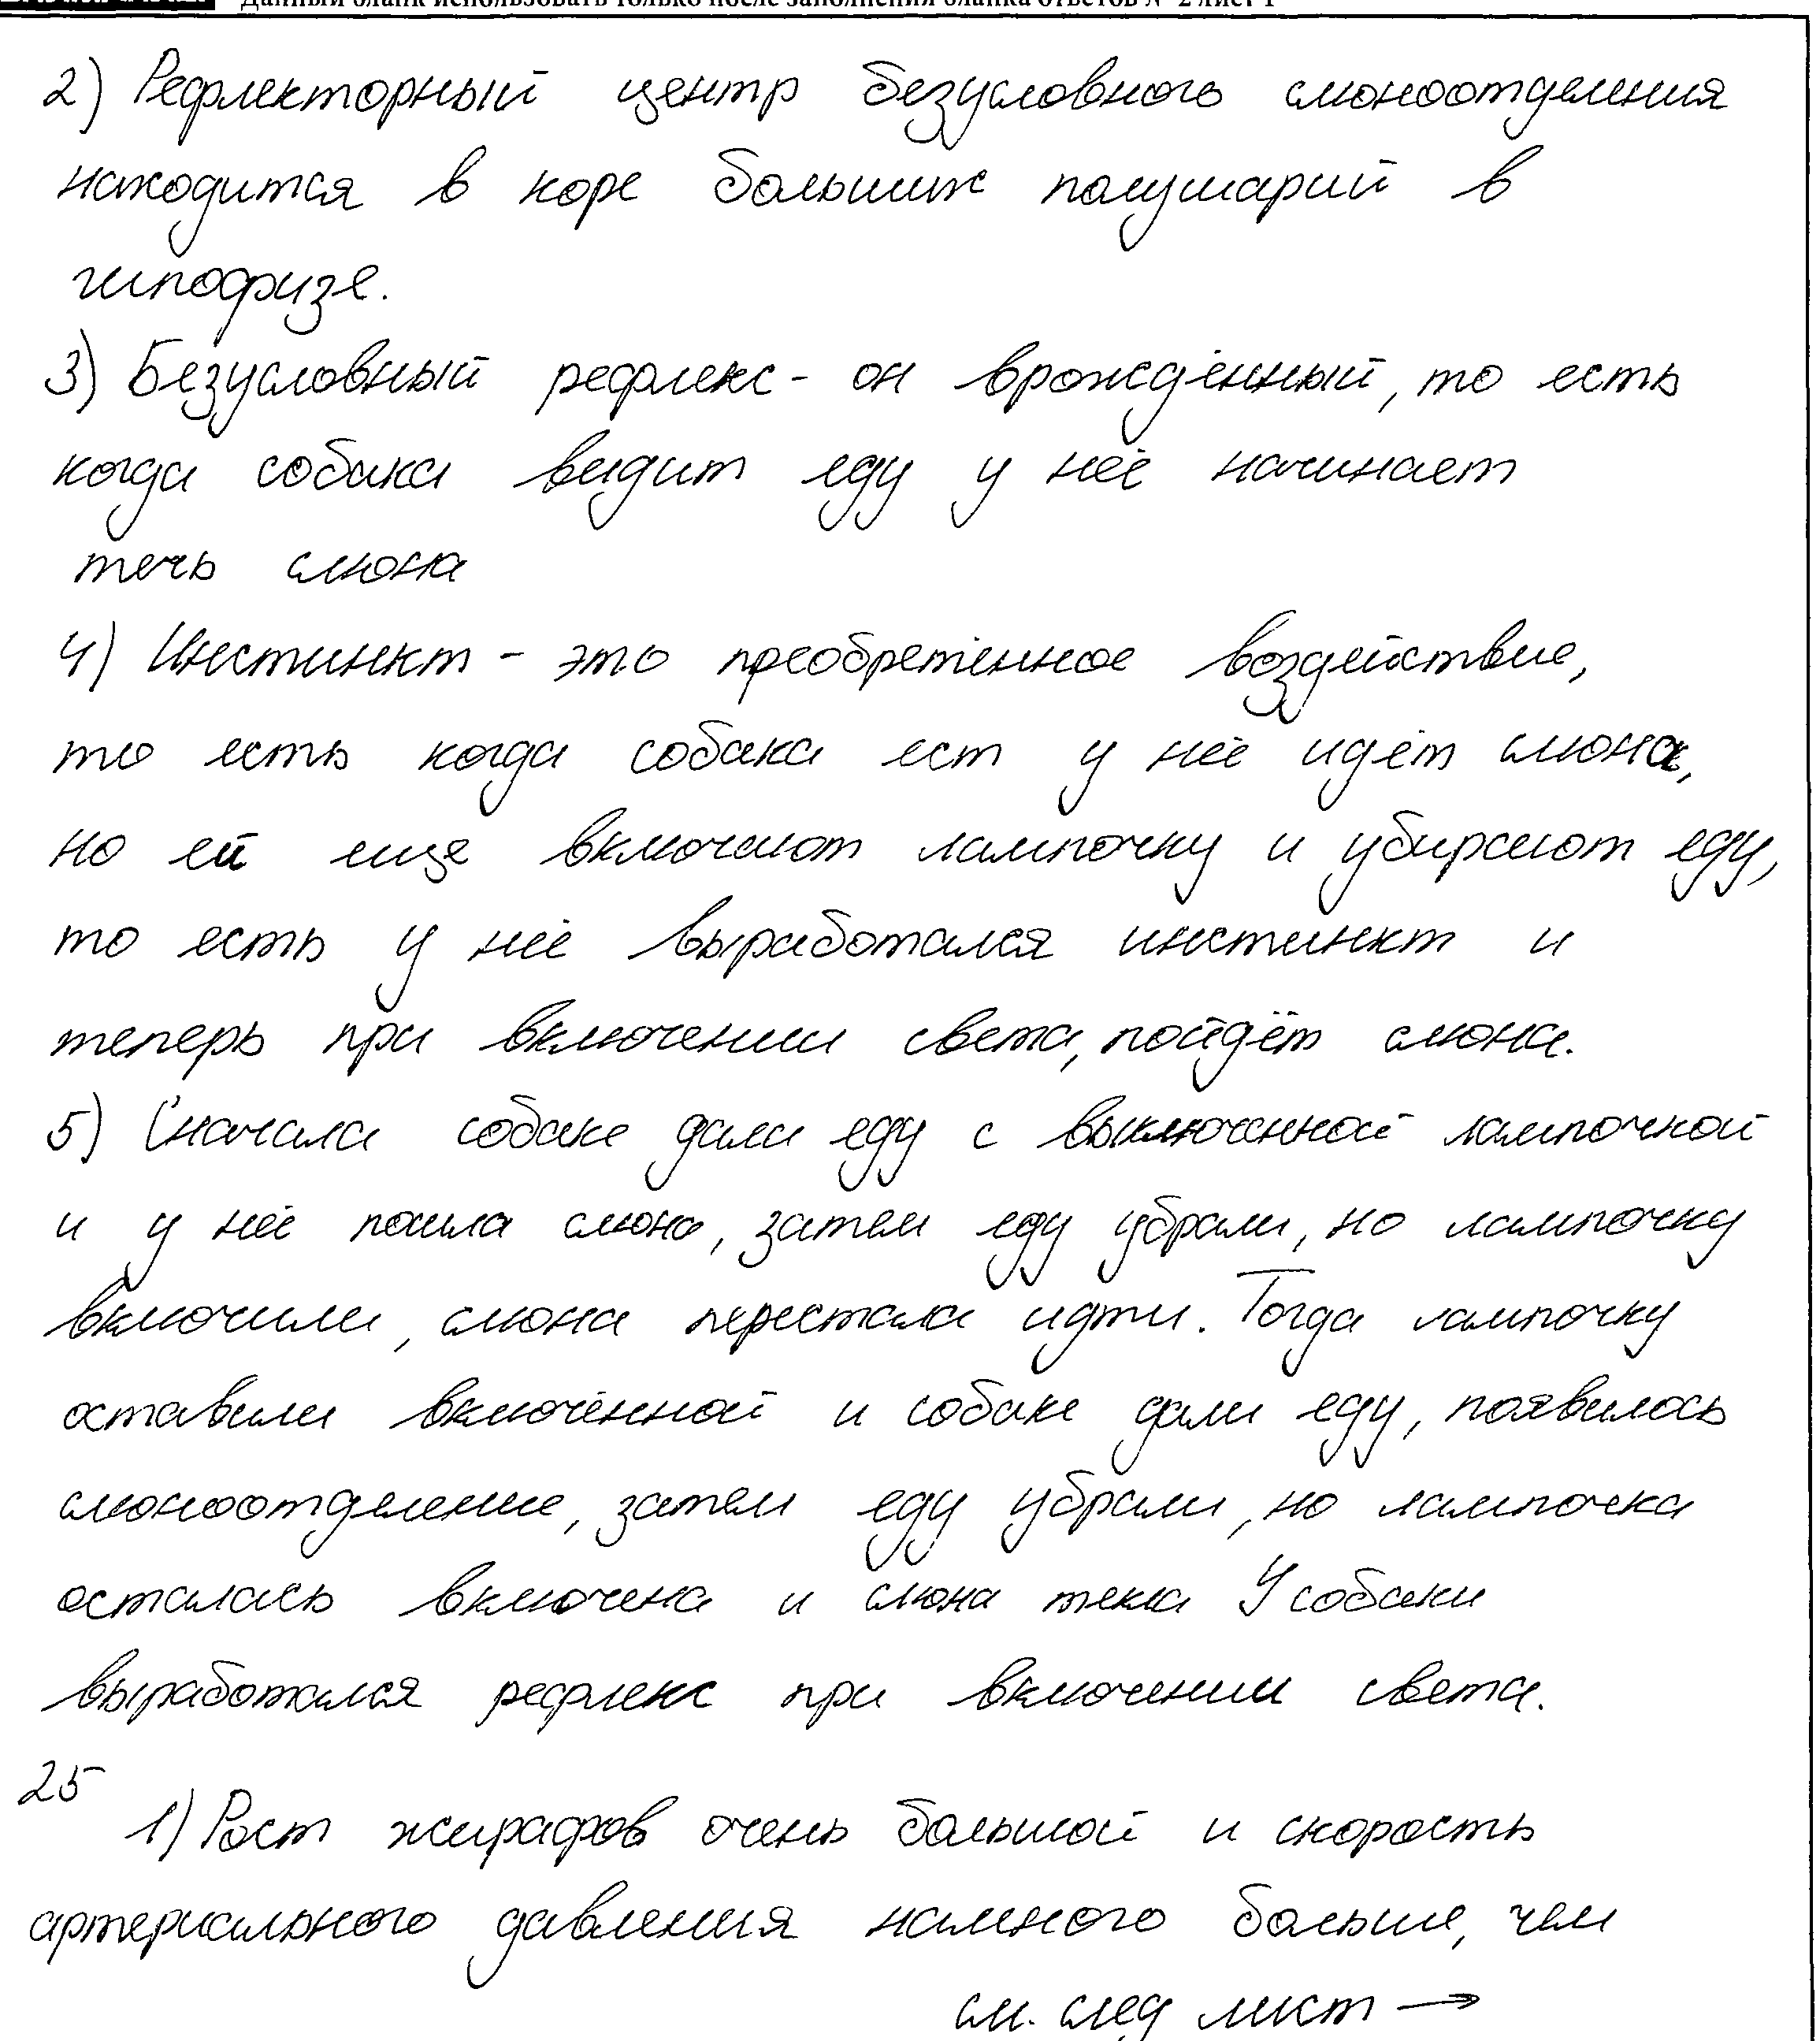 Данный бланк использовать только после заполнения бланка ответов № 2 лист 1
2) Рефлекторный центр безусловного слюноотделения
находится в коре больших полушарий в
гипофизе.
3) Безусловный рефлекс - он врождённый, то есть
когда собака видит еду у неё начинает
течь слюна
4) Инстинкт - это преобретённое воздействие,
то есть когда собака ест у неё идёт слюна,
но ей еще включают лампочку и убирают еду,
то есть у неё выработался инстинкт и
теперь при включении света, пойдёт слюна.
5) Сначала собаке дали еду с выключенной лампочкой
и у неё пошла слюна, затем еду убрали, но лампочку
включили, слюна перестала идти. Тогда лампочку
оставили включённой и собаке дали еду, появилось
слюноотделение, затем еду убрали, но лампочка
осталась включена и слюна текла У собаки
выработался рефлекс при включении света.
25
1) Рост жирафов очень большой и скорость
артериального давления намного больше, чем
см. след лист →